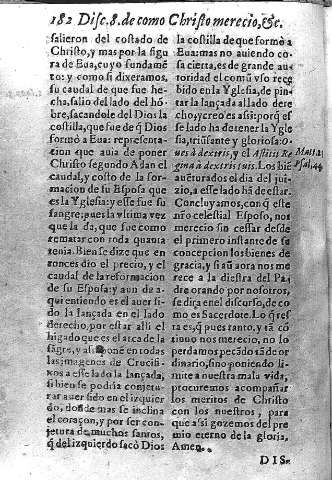 182 Disc. 8. de como Christo merecio, &c.
salieron del costado de
Christo, y mas por la figu
ra de Eua, cuyo fundamē
to: y como si dixeramos,
su caudal de que fue he-
cha, salio del lado del hō
bre, sacandole del Dios la
costilla, que fue de q̃ Dios
formò a Eua: representa
cion que auia de poner
Christo segundo Adan el
caudal, y costo de la for-
macion de su Esposa que
es la Yglesia: y esse fue su
sangre; pues la vltima vez
que la da, que fue como
rematar con toda quanta
tenia. Bien se dize que en
tonces dio el precio, y el
caudal de la reformacion
de su Esposa: y aun de a-
qui entiendo es el auer si-
do la lançada en el lado
derecho, por estar alli el
higado que es el arca de la
sāgre, y assi ponē en todas
las imagenes de Crucifi-
xos a esse lado la lançada,
si bien se podria conjetu-
rar auer sido en el izquier
do, donde mas se inclina
el coraçon, y por ser con-
jetura de muchos santos,
q̃ del izquierdo sacò Dios
la costilla de que formò a
Eua: mas no auiendo co-
sa cierta, es de grande au-
toridad el comū vso rece
bido en la Yglesia, de pin-
tar la lançada al lado dere
cho, y creo es assi: porq̃ es
se lado ha de tener la Ygle
sia, triūfante y gloriosa: O
ues à dextris, y el Astitit Re
gina à dextris tuis. Los biē
auēturados el dia del jui-
zio, a esse lado hā de estar.
Concluyamos, con q̃ este
nr̃o celestial Esposo, nos
merecio sin cessar desde
el primero instante de su
concepcion los bienes de
gracia, y si aũ aora nos me
rece a la diestra del Pa-
dre orando por nosotros,
se dira en el discurso, de co
mo es Sacerdote. Lo q̃ res
ta es, q̃ pues tanto, y tā cō
tinuo nos merecio, no lo
perdamos pecādo tā de or
dinario, sino poniendo li-
mite a nuestra mala vida,
procuremos acompañar
los meritos de Christo
con los nuestros, para
que assi gozemos del pre
mio eterno de la gloria.
Amen.
Matt. 25
Psal. 44
DIS-